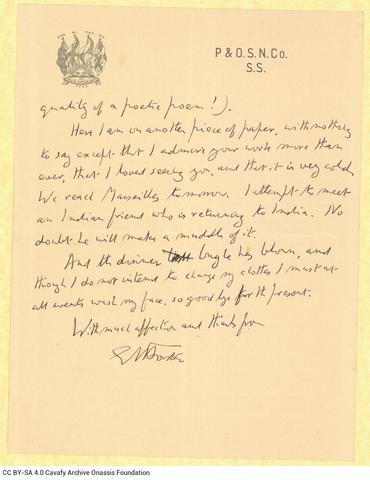 P & O. S. N. Co.
S.S.
quality of a poetic poem!).
Here I am on another piece of paper, with nothing
to say except that I admire your work more than
ever, that I loved seeing you, and that it is very cold.
We reach Marseilles tomorrow. I attempt to meet
an Indian friend who is returning to India. No
doubt he will make a muddle of it.
And the dinner bugle has blown, and
though I do not intend to change my clothes I must at
all events wash my face, so good bye for the present.
With much affection and thanks from
EMForster
CC BY-SA 4.0 Cavafy Archive Onassis Foundation